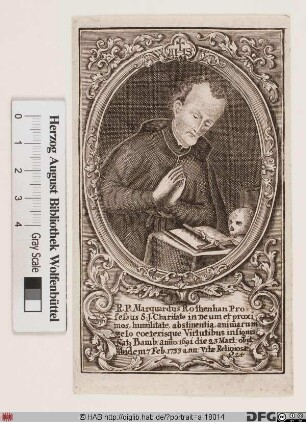 IHS
R.P. Marquardus Rothenhan Pro-
fessus S.J. Charitate in Deum et proxi
mos, humilitate, abstinentia, animarum
zelo coeterisque Virtutibus insignis
Nat9 Bamb. anno 1691 die 23 Mart. obijt
ibidem 7 Feb. 1733 ann. Vitæ Religiosæ
0 1 2 3 4
Gray Scale
Herzog August Bibliothek Wolfenbüttel
© HAB http://diglib.hab.de/?portrait=a_18014
DFG